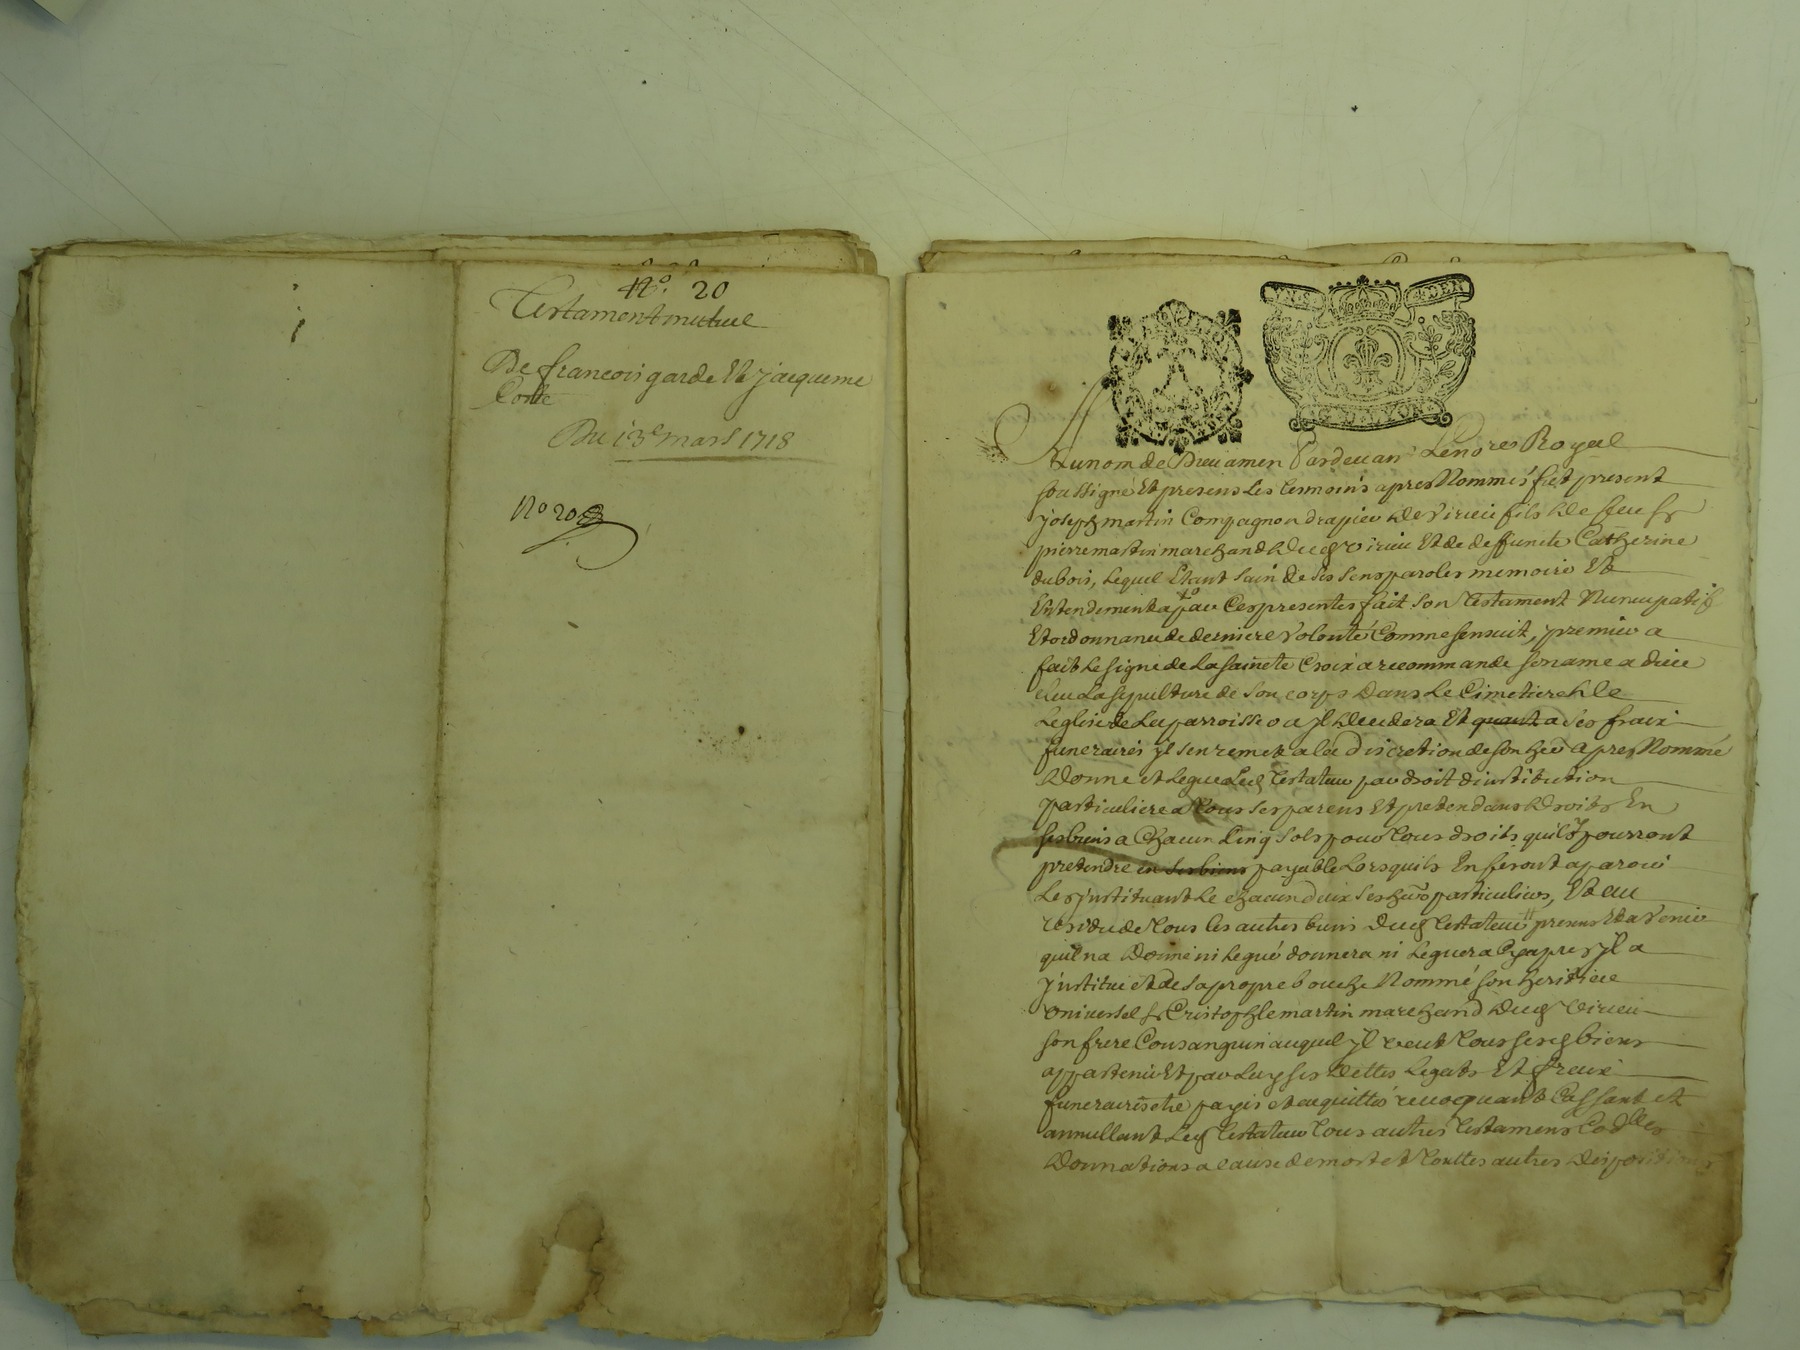 No. 20
Testament mutuel
De francois garde Et jacqueme
Conte
Du 13e mars 1718
No 20
GEN. DE LYON
Au nom de Dieu amen Pardevant Le no.re Royal
soussigné Et presens Les temoins apres Nommés fut present
joseph martin Compagnon drapier de Virieu fils de feu sr
pierre martin marchand dud Virieu Et de deffuncte Catherine
dubois, Lequel Etant sain de ses sens paroles memoire Et
Entendement a par Ces presentes fait son Testament Nuncupatif
Et ordonnance de derniere Volonté Comme sensuit, premier a
fait Le signe de La saincte Croix a recommandé son ame a dieu
eleu La sepulture de son corps Dans Le Cimetiere de
Leglise de La parroisse ou jl decedera Et quant a ses fraix
funeraires jl sen remet a la discretion de son her apres Nommé
Donne et Legue Led Testateur par droit dinstitution
particuliere a Tous ses parens Et pretendans droits En
ses biens a Chacun Cinq sols pour Tous droits quils y pourront
pretendre en ses biens payable Lorsquils En feront aparoir
Les jnstituant Le chacun deux ses hers particuliers, Et au
residu de Tous les autres biens Dud Testateur presens Et a Venir
quil na Donné ni Legué donnera ni Leguera Cy apres jl a
jnstitué et de sa propre bouche Nommé son heritier
Universel sr Cristophle martin marchand dud Virieu
son frere Consanguin auquel jl veut Tous sesd biens
appartenir Et par Luy ses dettes Legats Et fraix
funeraires etre payés et acquittés revocquant Cassant et
annullant Led Testateur Tous autres Testamens Codlles
Donnations a cause de mort et Touttes autres dispositions